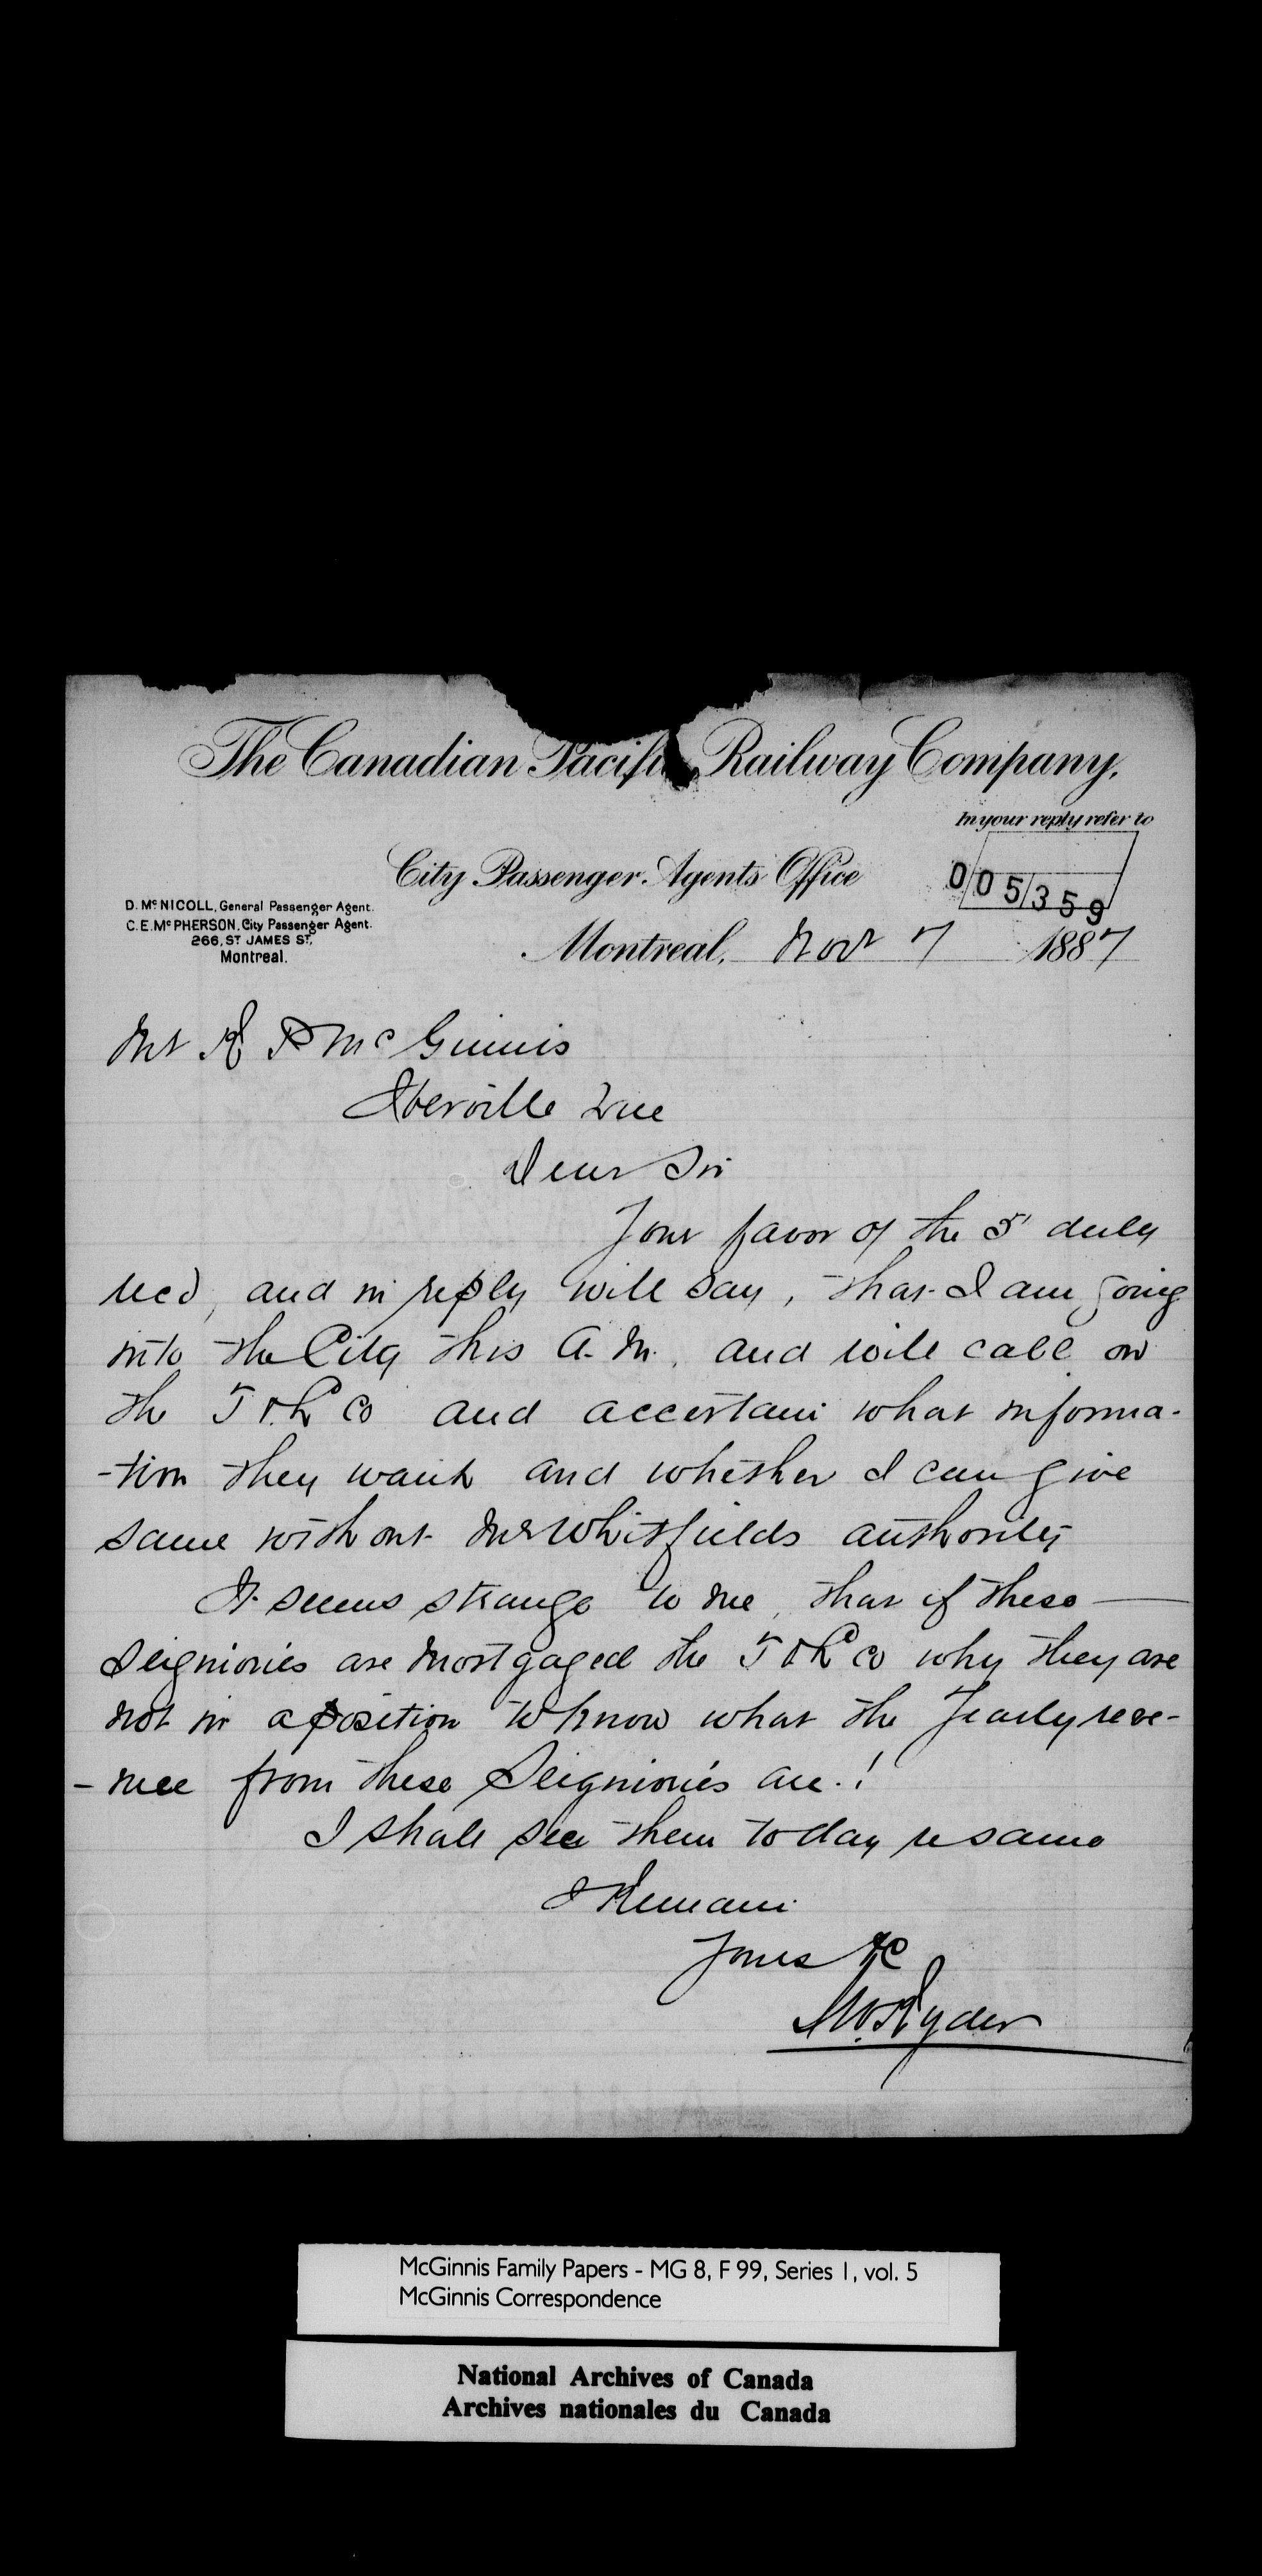 The Canadian Pacific Railway Company,
In your reply refer to
005359
City Passenger Agents Office
D. McNICOLL, General Passenger Agent.
C. E. McPHERSON, City Passenger Agent.
266, ST JAMES ST,
Montreal.
Montreal, Novr 7 1887
Mr A P McGinnis
Iberville Que
Dear Sir
Your favor of the 5' duly
recd, and in reply will say, that I am going
into the City this A.M. and will call on
the T & L Co and accertain what informa-
-tion they want and whether I can give
same without Mr Whitfields authority
It seems strange to me, that if these
Seigniories are mortgaged the T & L Co why they are
not in a position to know what the Yearly reve-
-nue from these Seigniories are.!
I shall see them today re same
I Remain
Yours &c
M. Ryder
McGinnis Family Papers - MG 8, F 99, Series 1, vol. 5
McGinnis Correspondence
National Archives of Canada
Archives nationales du Canada